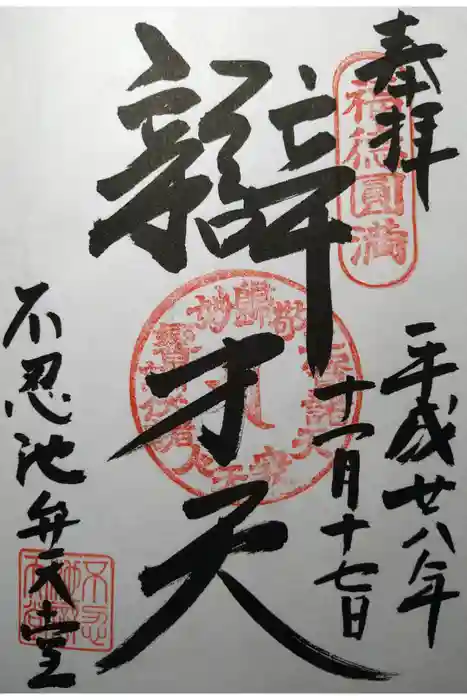 奉拝
福徳圓満
平成廿八年
十一月十七日
辯才天
不忍池弁天堂